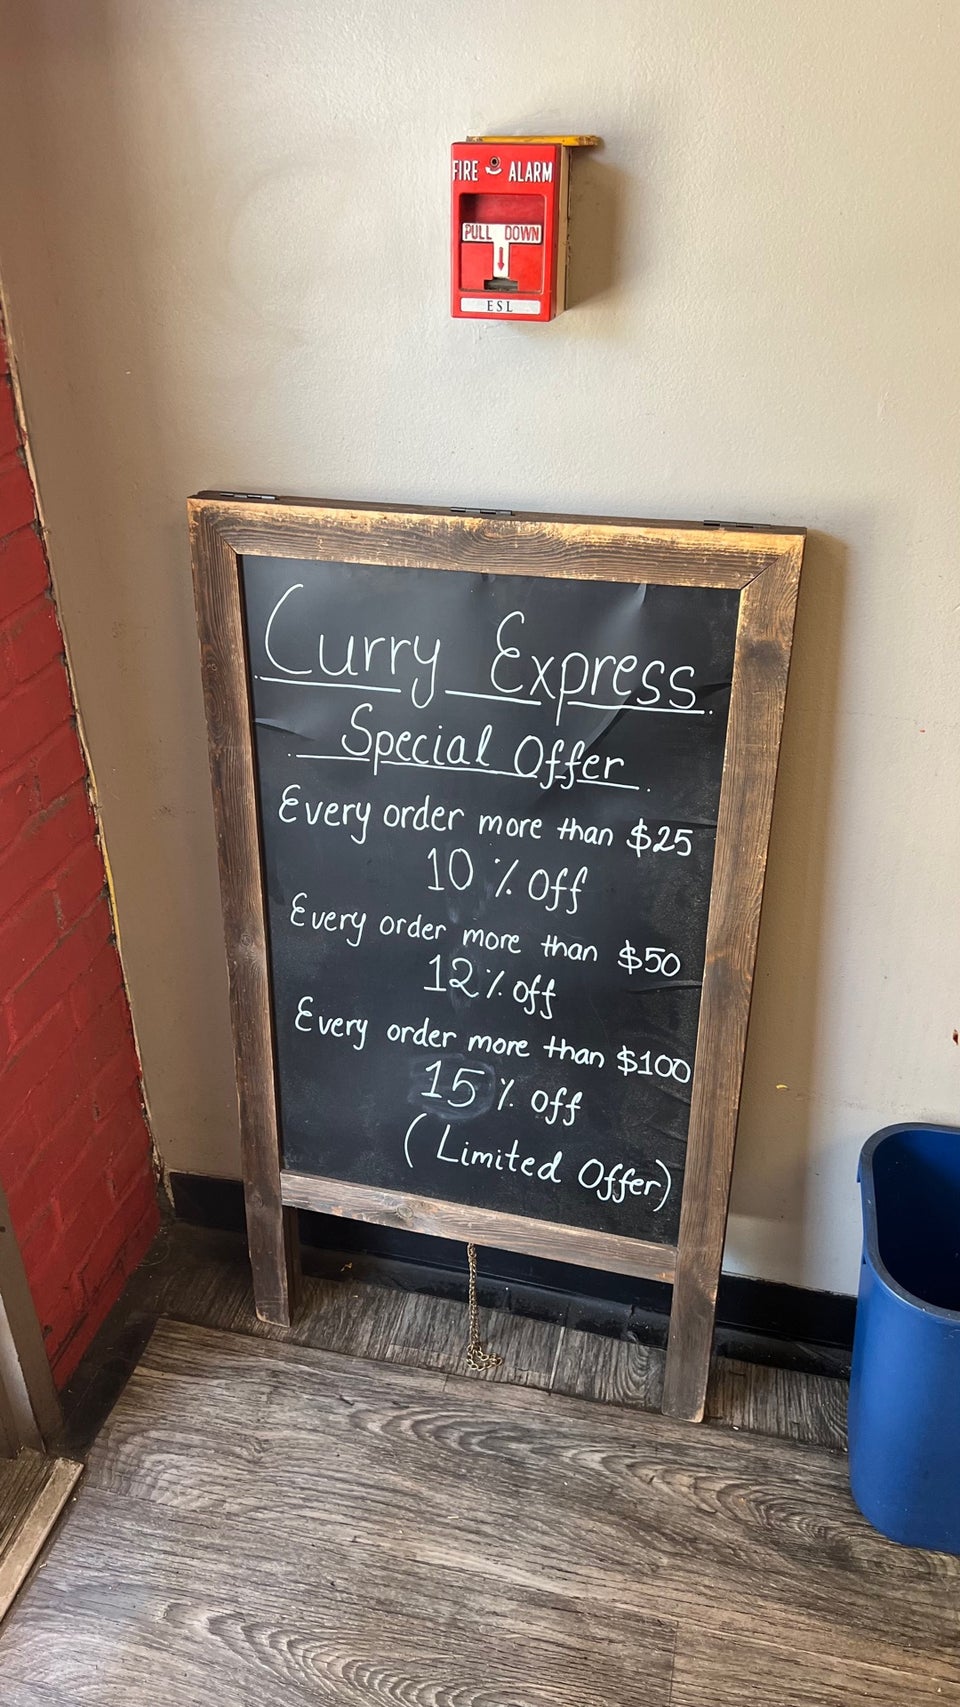 FIRE ALARM
PULL DOWN
ESL
Curry Express
Special Offer
Every order more than $25
10 % off
Every order more than $50
12% off
Every order more than $100
15% off
(Limited Offer)